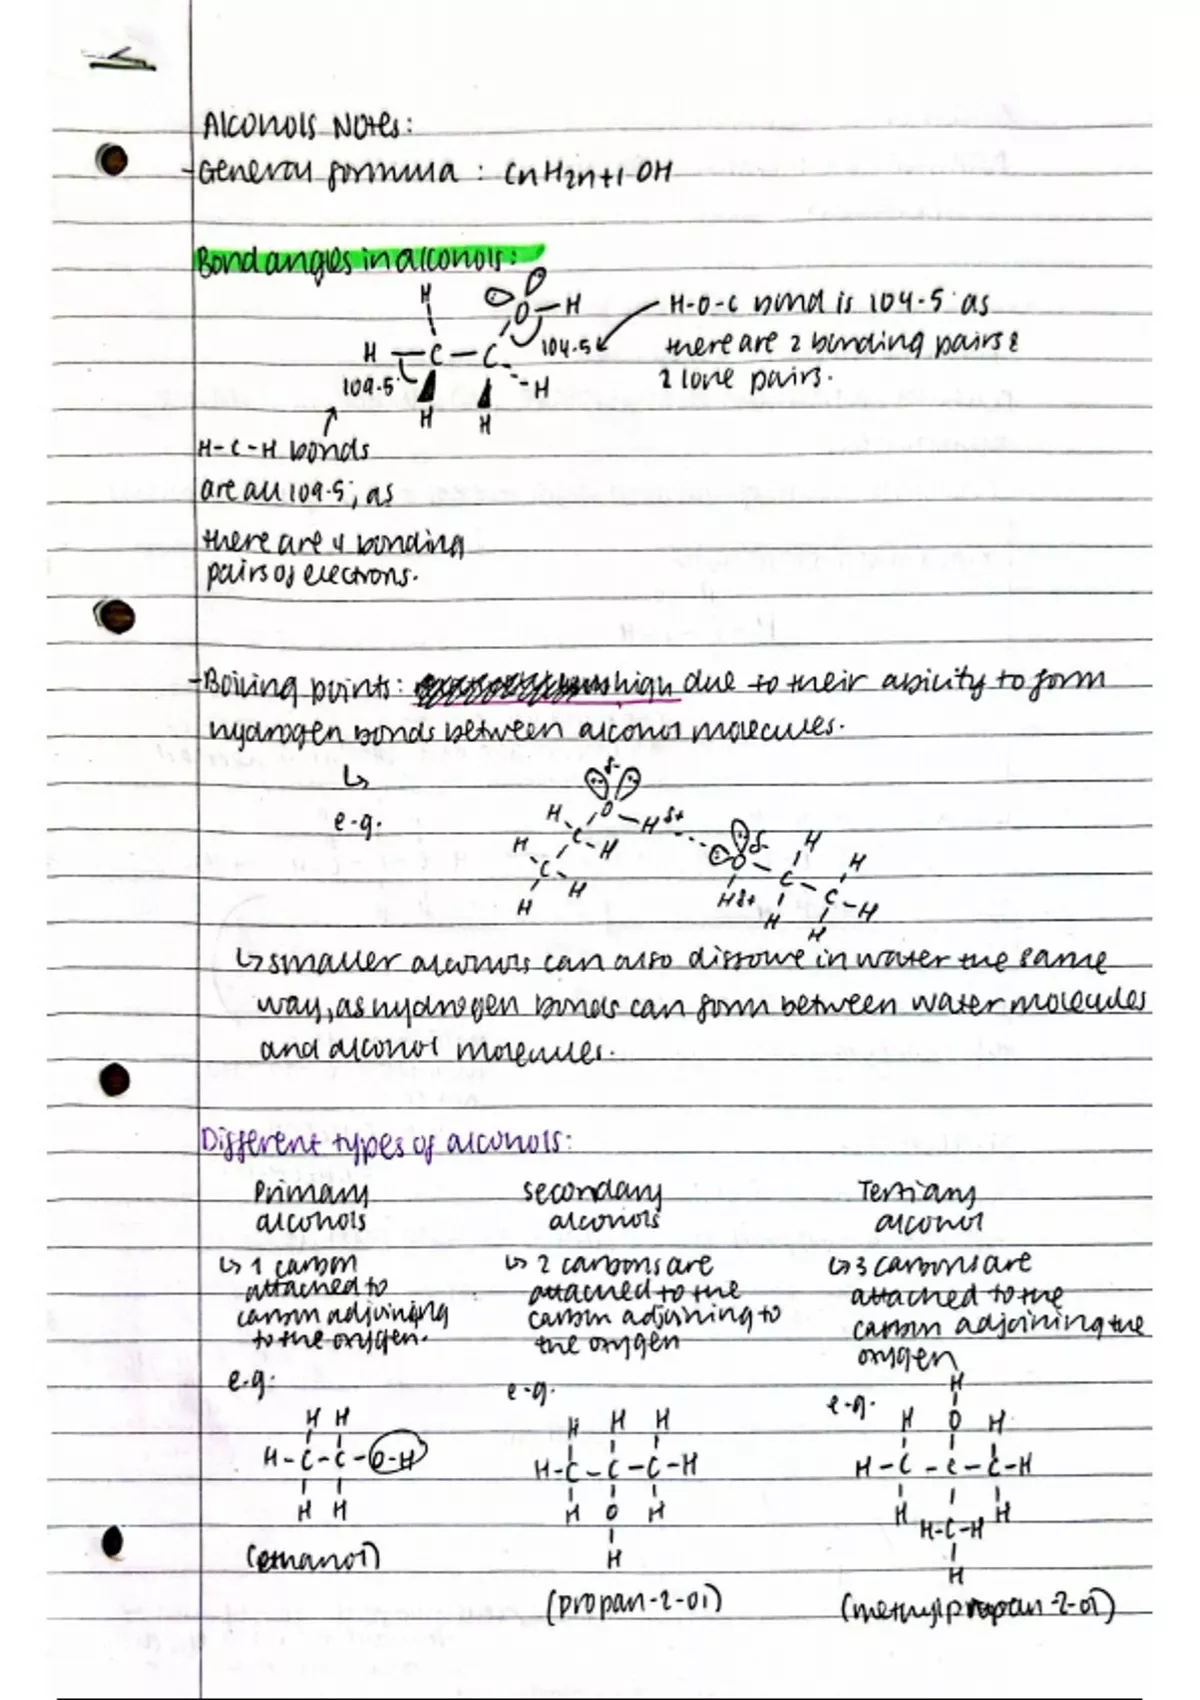 Alcohols Notes:
- General formula : CnH2n+1 OH
Bond angles in alcohols:
H
O - H
H - C - C
104.5
109.5
H
H
H
H-O-C bond is 104.5° as
there are 2 bonding pairs &
2 lone pairs.
H-C-H bonds
are all 109.5°, as
there are 4 bonding
pairs of electrons.
- Boiling points: high due to their ability to form
hydrogen bonds between alcohol molecules.
↳
e.g.
δ-
H O - H δ+
H C - H
C - H
H
δ-
O H
H δ+ C H
H C - H
H
↳ smaller alcohols can also dissolve in water the same
way, as hydrogen bonds can form between water molecules
and alcohol molecules.
Different types of alcohols:
Primary
alcohols
↳ 1 carbon
attached to
carbon adjoining
to the oxygen.
e.g.
H H
H - C - C - O - H
H H
(ethanol)
secondary
alcohols
↳ 2 carbons are
attached to the
carbon adjoining to
the oxygen
e.g.
H H H
H - C - C - C - H
H O H
H
(propan-2-ol)
Tertiary
alcohol
↳ 3 carbons are
attached to the
carbon adjoining the
oxygen
e.g.
H
H O H
H - C - C - C - H
H H
H - C - H
H
(methylpropan-2-ol)